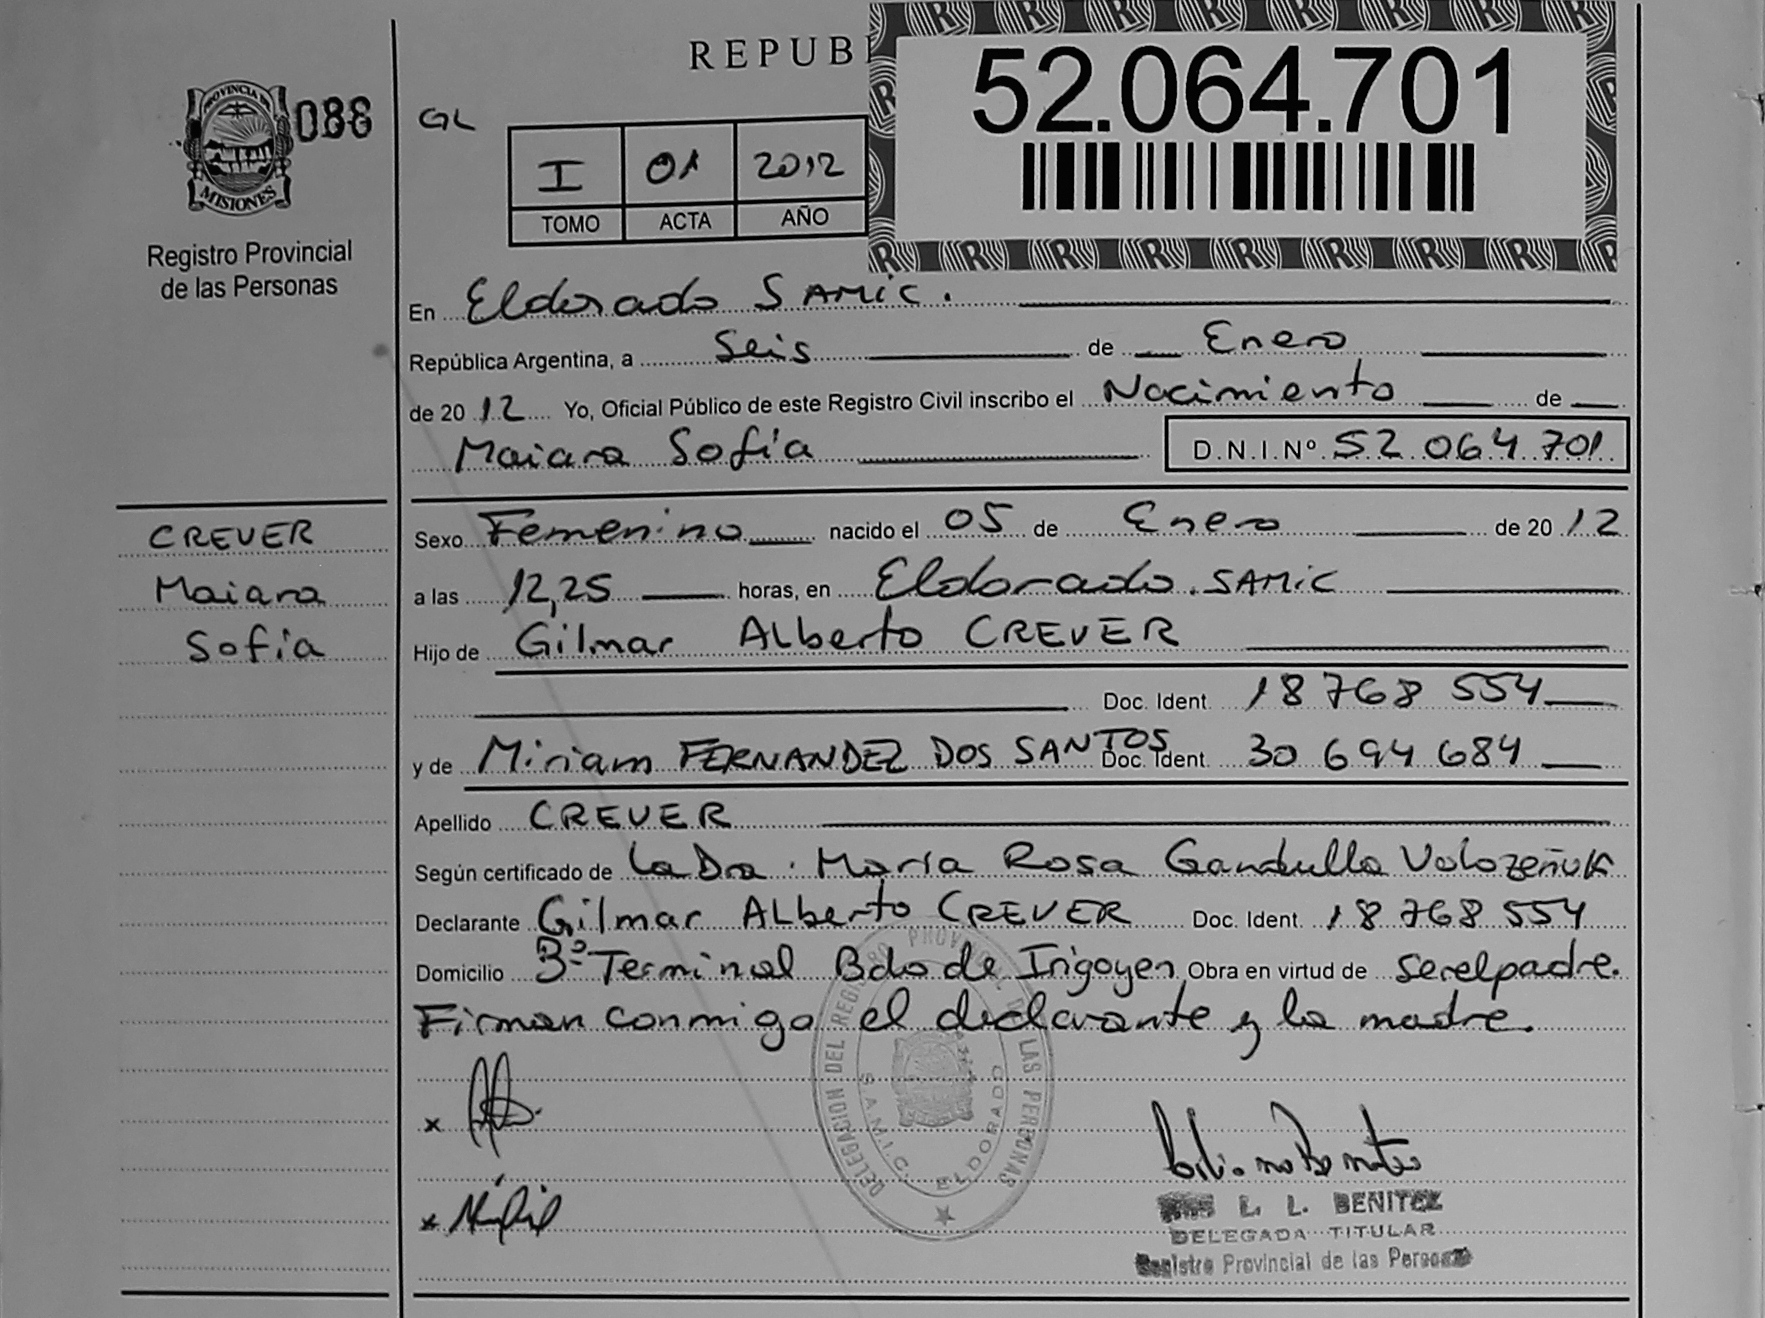 REPUB
52.064.701
PROVINCIA DE
MISIONES
088
GL
I 01 2012
TOMO ACTA AÑO
Registro Provincial
de las Personas
En Eldorado SAMIC.
República Argentina, a Seis de Enero
de 2012 Yo, Oficial Público de este Registro Civil inscribo el Nacimiento de
Maiara Sofía D.N.I.Nº 52 064 701
CREVER
Maiara
Sofía
Sexo Femenino nacido el 05 de Enero de 2012
a las 12,25 horas, en Eldorado. SAMIC
Hijo de Gilmar Alberto CREVER
Doc. Ident. 18 768 554
y de Miriam FERNANDEZ DOS SANTOS Doc. Ident. 30 694 684
Apellido CREVER
Según certificado de la Dra. María Rosa Gandulla Volozeñuk
Declarante Gilmar Alberto CREVER Doc. Ident. 18 768 554
Domicilio Bº Terminal Bdo de Irigoyen Obra en virtud de ser el padre.
Firman conmigo el declarante y la madre.
DELEGACION DEL REGISTRO PROVINCIAL DE LAS PERSONAS
S.A.M.I.C. ELDORADO
L. L. BENITEZ
DELEGADA TITULAR
Registro Provincial de las Personas